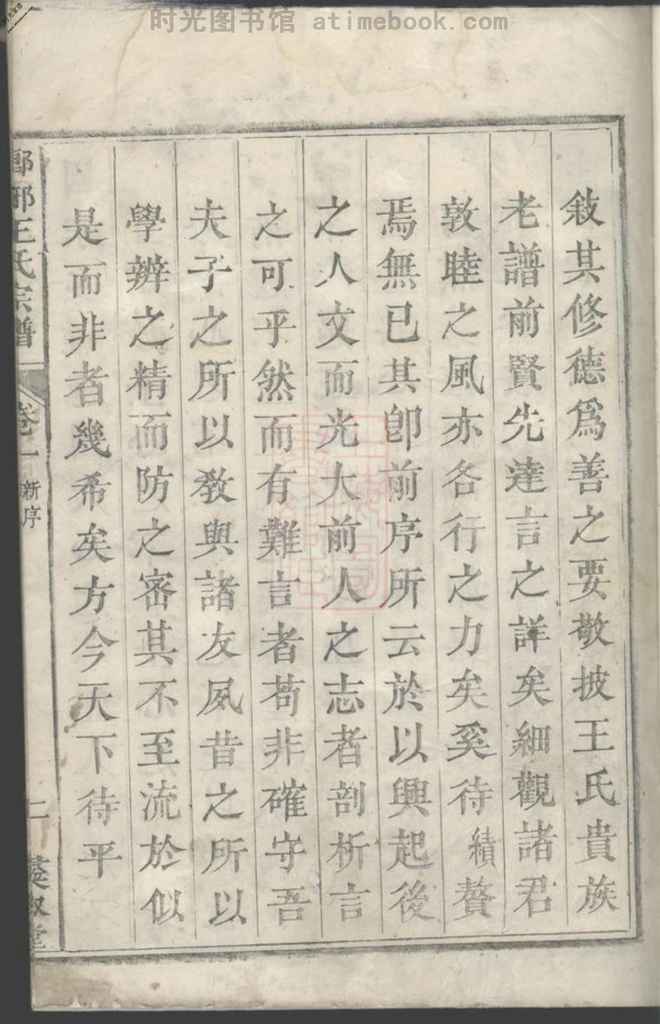 时光图书馆 atimebook.com
敍其修德爲善之要敬披王氏貴族
老譜前賢先達言之詳矣細觀諸君
敦睦之風亦各行之力矣奚待績贅
焉無已其卽前序所云於以興起後
之人文而光大前人之志者剖析言
之可乎然而有難言者苟非確守吾
夫子之所以敎與諸友夙昔之所以
學辨之精而防之密其不至流於似
是而非者幾希矣方今天下待平
瑯琊王氏宗譜
卷一 新序
二